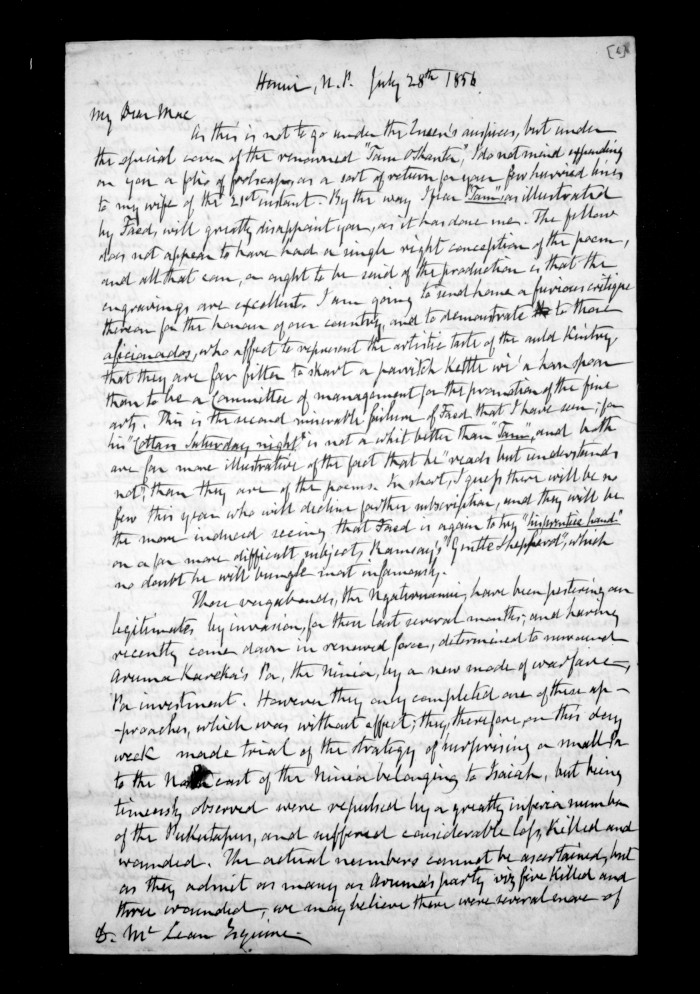 [6]
Henui, N.P. July 28th 1856
My Dear Mac
As this is not to go under the Queen's auspices, but under
the special cover of the renowned "Tam O'Shanter", I do not mind expending
on you a folio of foolscap, as a sort of return for your few hurried lines
to my wife of the 21st instant. By the way I fear "Tam", as illustrated
by Faed, will greatly disappoint you, as it has done me. The fellow
does not appear to have had a single right conception of the poem,
and all that can, or ought to be said of the production is that the
engravings are excellent. I am going to send home a furious critique
thereon for the honour of our country, and to demonstrate to those
aficionados, who affect to represent the artistic taste of the auld Kintrey,
that they are far fitter to skart a parritch Kettle wi' a horn spoon
than to be a Committee of management for the promotion of the fine
arts. This is the second miserable failure of Faed that I have seen; for
his "Cottars Saturday night" is not a whit better than "Tam", and both
are far more illustrative of the fact that he "reads but understands
not", than they are of the poems. In short, I guess there will be no
few this year who will decline further subscription, and they will be
the more induced seeing that Faed is again to try "his prentice hand"
on a far more difficult subject, Ramsay's "Gentle Shepherd", which
no doubt he will bungle most infamously.
Those vagabonds, the Ngatiruanui, have been pestering our
legitimates by invasion, for these last several months, and having
recently come down in renewed force, determined to surround
Arama Karaka's Pa, the Ninia, by a new mode of warfare,
Pa investment. However they only completed one of these ap-
-proaches, which was without effect; they, therefore, on this day
week made trial of the strategy of surprising a small Pa
to the North east of the Ninia belonging to Isaiah, but being
timeously observed were repulsed by a greatly inferior number
of the Puketapus, and suffered considerable loss, killed and
wounded. The actual numbers cannot be ascertained, but
as they admit as many as Arama's party viz five killed and
three wounded, we may believe there were several more of
D. McLean Esquire.